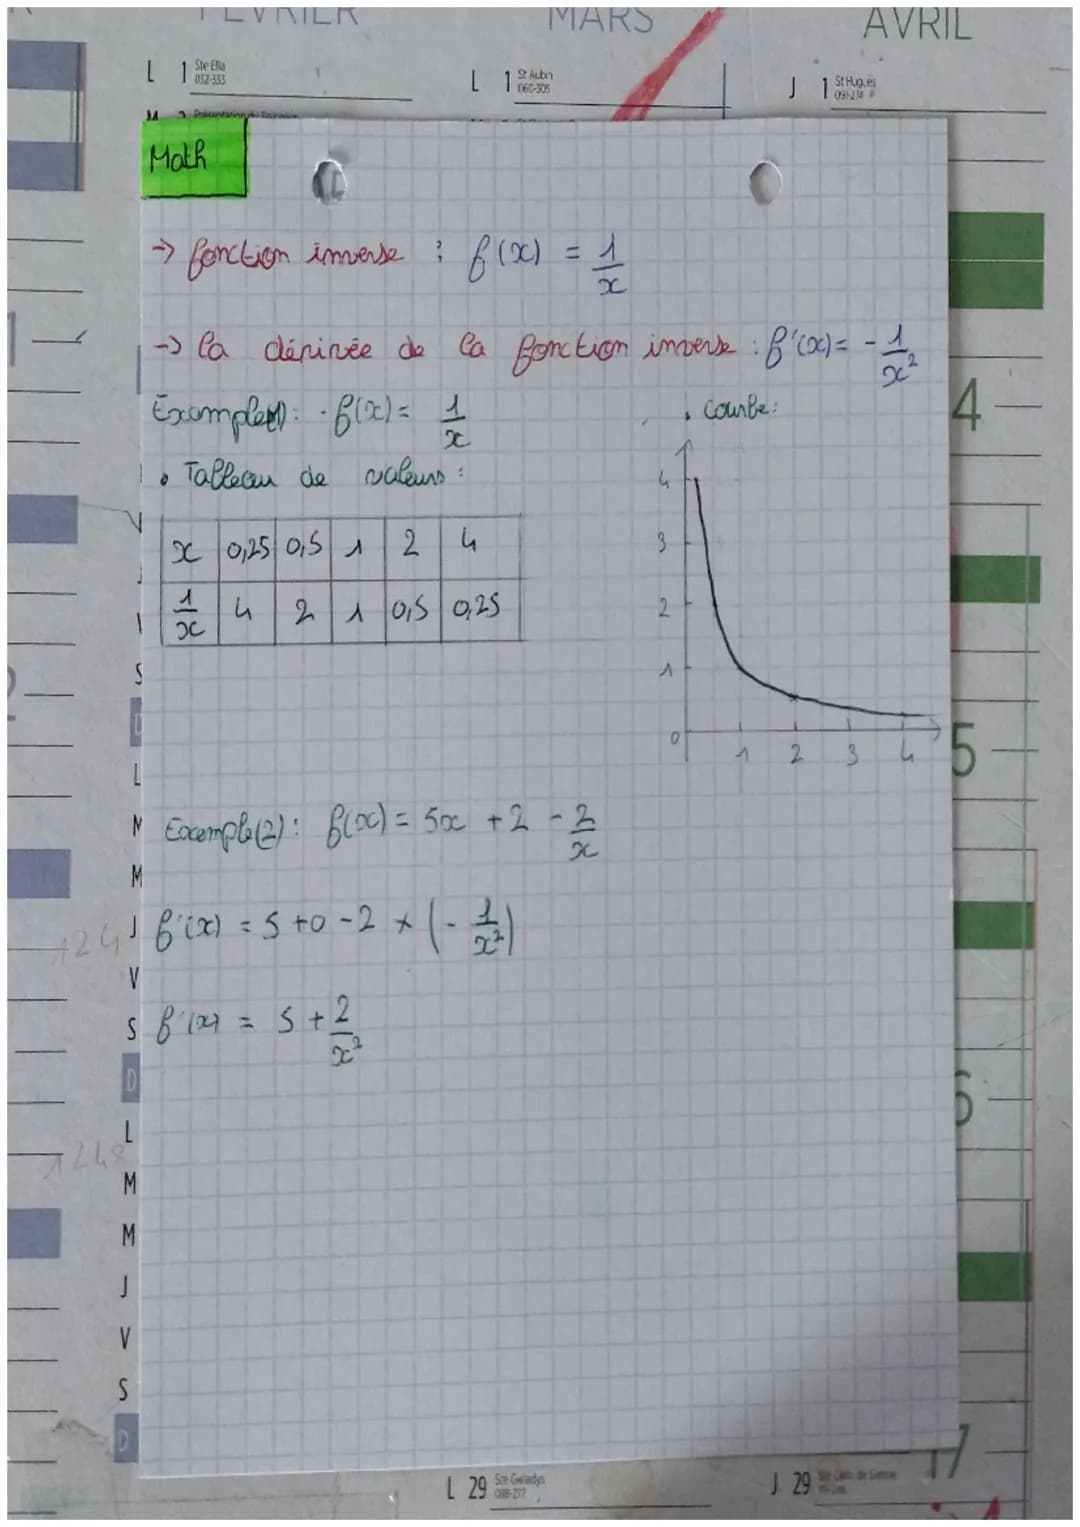 FEVRIER
MARS
AVRIL
L 1 Ste Ella 032-333
L 1 St Aubin 060-305
J 1 St Hugues
Math
→ fonction inverse : f(x) = 1/x
→ la dérivée de la fonction inverse : f'(x) = - 1/x²
Exemple(1) : · f(x) = 1/x
• Courbe :
• Tableau de valeurs :
x 0,25 0,5 1 2 4
1/x 4 2 1 0,5 0,25
4
3
2
1
0 1 2 3 4
Exemple(2) : f(x) = 5x + 2 - 2/x
f'(x) = 5 + 0 - 2 × (- 1/x²)
f'(x) = 5 + 2/x²
4
5
6
17
124
1248
S
D
L
M
M
J
V
S
D
L
M
M
J
V
S
D
L 29 Ste Gwladys 088-277
J 29 Ste Cath. de Sienne